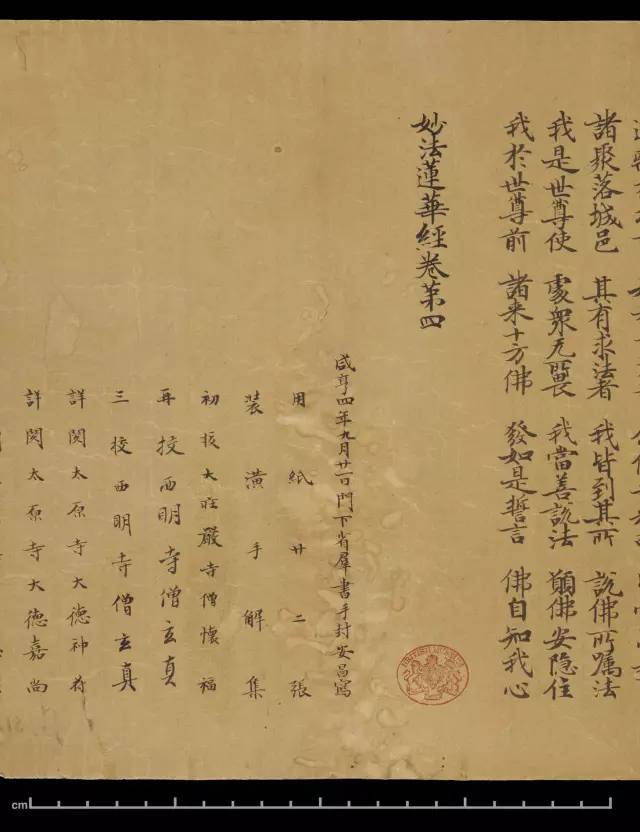 諸聚落城邑 其有求法者 我皆到其所 說佛所囑法
我是世尊使 處衆无所畏 我當善說法 願佛安隱住
我於世尊前 諸来十方佛 發如是誓言 佛自知我心
妙法蓮華經卷第四
咸亨四年九月廿一日門下省群書手封安昌寫
用紙廿二張
裝潢手解集
初校大莊嚴寺僧懷福
再校西明寺僧玄真
三校西明寺僧玄真
詳閱太原寺大德神符
詳閱太原寺大德嘉尚
BRITISH MUSEUM
cm